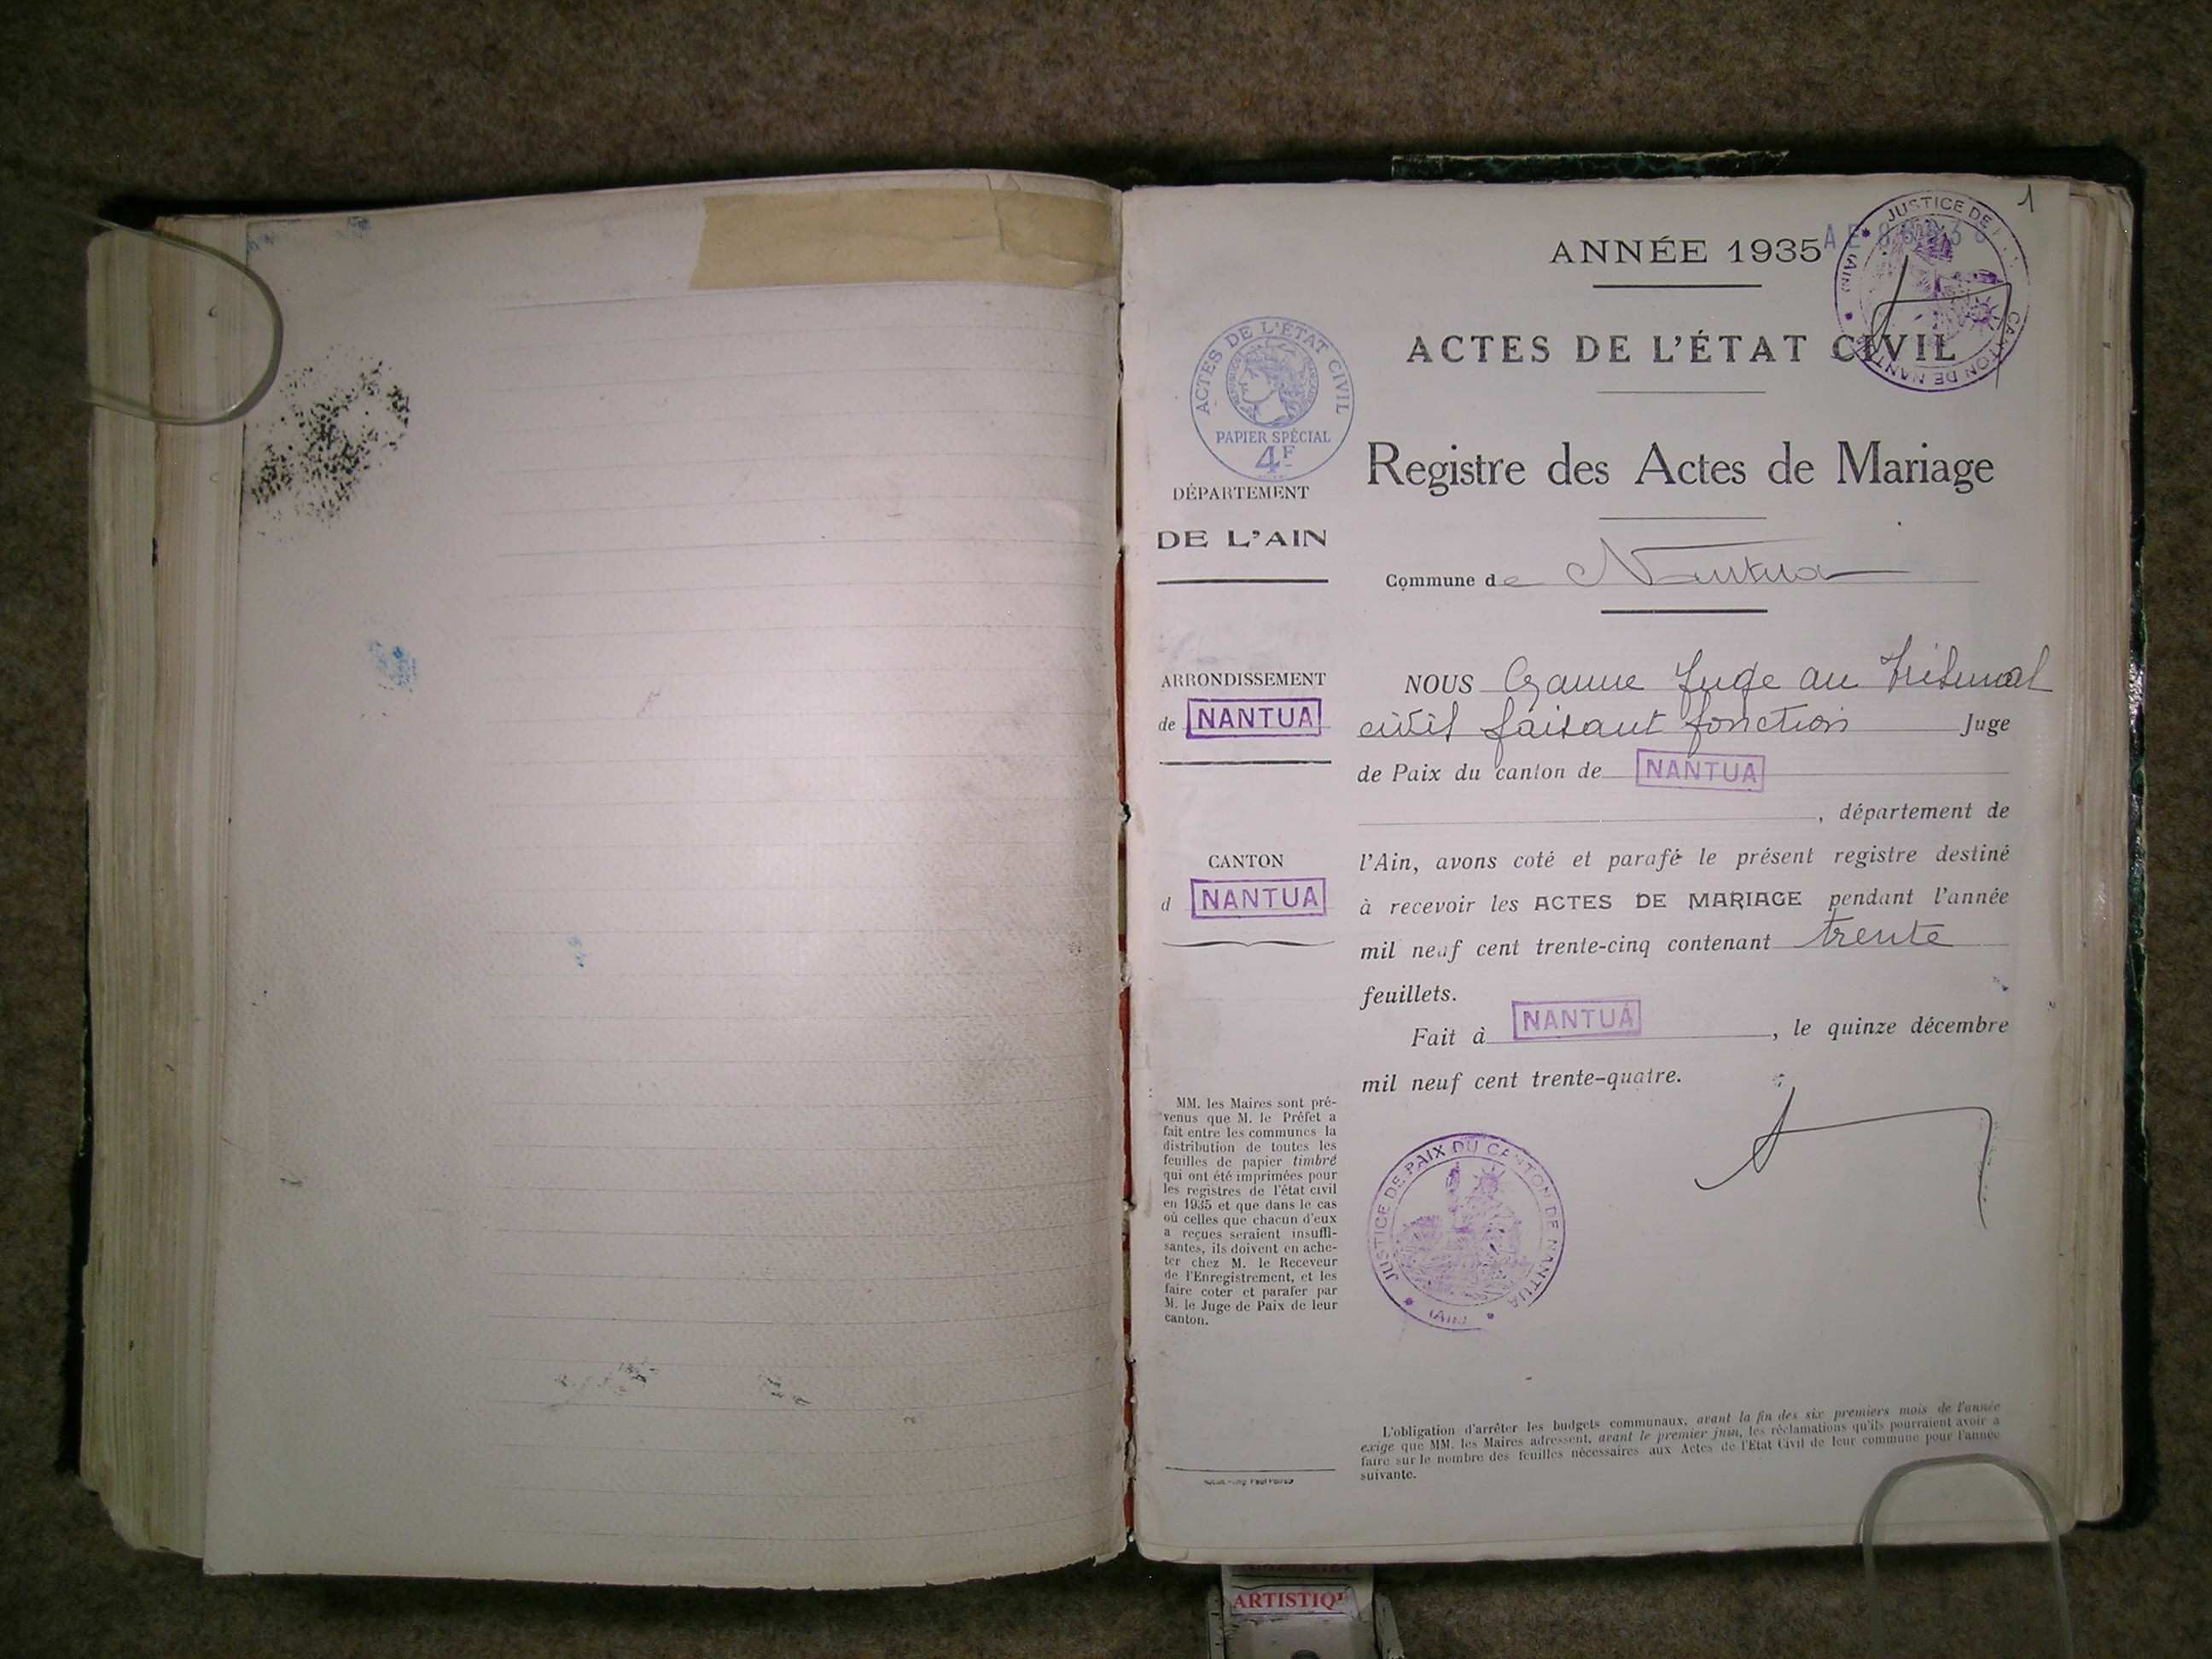 1
ANNÉE 1935
ACTES DE L'ÉTAT CIVIL
JUSTICE DE
CANTON DE NANTUA
(AIN)
ACTES DE L'ÉTAT CIVIL
RÉPUBLIQUE FRANÇAISE
PAPIER SPÉCIAL
4F
Registre des Actes de Mariage
Commune de Nantua
DÉPARTEMENT
DE L'AIN
ARRONDISSEMENT
de NANTUA
CANTON
d NANTUA
NOUS Juge au Tribunal
civil faisant fonction Juge
de Paix du canton de NANTUA
, département de
l'Ain, avons coté et parafé le présent registre destiné
à recevoir les ACTES DE MARIAGE pendant l'année
mil neuf cent trente-cinq contenant trente
feuillets.
Fait à NANTUA, le quinze décembre
mil neuf cent trente-quatre.
JUSTICE DE PAIX DU CANTON DE NANTUA
(AIN)
MM. les Maires sont pré-
venus que M. le Préfet a
fait entre les communes la
distribution de toutes les
feuilles de papier timbré
qui ont été imprimées pour
les registres de l'état civil
en 1935 et que dans le cas
où celles que chacun d'eux
a reçues seraient insuffi-
santes, ils doivent en ache-
ter chez M. le Receveur
de l'Enregistrement, et les
faire coter et parafer par
M. le Juge de Paix de leur
canton.
L'obligation d'arrêter les budgets communaux, avant la fin des six premiers mois de l'année
exige que MM. les Maires adressent, avant le premier juin, les réclamations qu'ils pourraient avoir à
faire sur le nombre des feuilles nécessaires aux Actes de l'Etat Civil de leur commune pour l'année
suivante.
ARTISTIQ